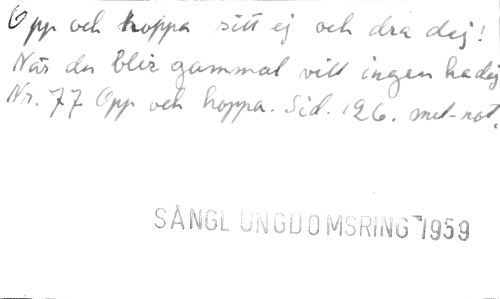 Opp och hoppa sitt ej och dra dej!
När du blir gammal vill ingen ha dej
Nr. 77 Opp och hoppa. Sid. 126. med not.
SÅNGL UNGDOMSRING 1959